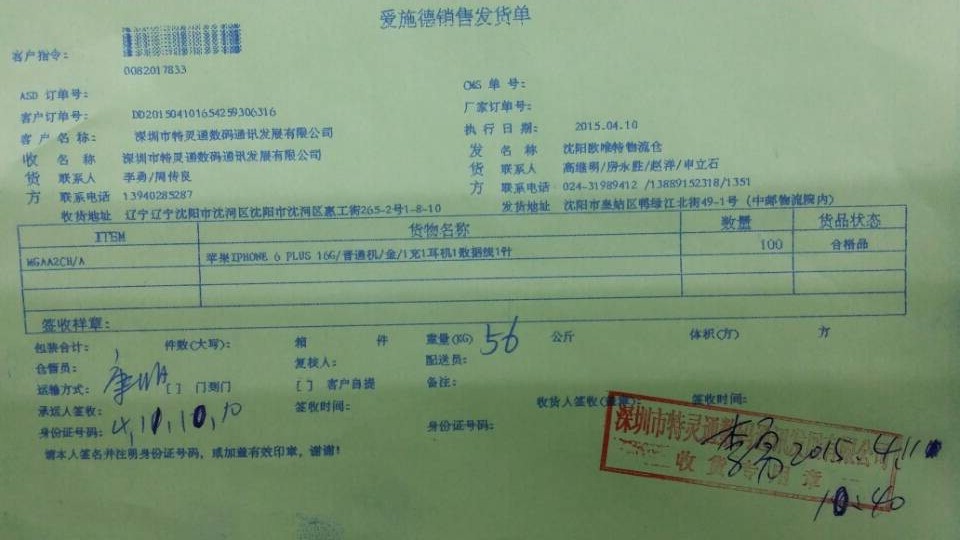 爱施德销售发货单
客户指令:
0082017833
ASD 订单号:
CMS 单 号:
客户订单号: DD201504101654259306316
厂家订单号:
客 户 名 称: 深圳市特灵通数码通讯发展有限公司
执 行 日 期: 2015.04.10
收 名 称 深圳市特灵通数码通讯发展有限公司
发 名 称 沈阳欧唯特物流仓
货 联系人 李勇/周传良
货 联系人 高继明/房永胜/赵洋/申立石
方 联系电话 13940285287
方 联系电话 024-31989412 /13889152318/1351
收货地址 辽宁辽宁沈阳市沈河区沈阳市沈河区惠工街265-2号1-8-10
发货地址 沈阳市皇姑区鸭绿江北街49-1号 (中邮物流院内)
ITEM 货物名称 数量 货品状态
MGAA2CH/A 苹果IPHONE 6 PLUS 16G/普通机/金/1充1耳机1数据线1针 100 合格品
签收样章:
包装合计: 件数(大写): 箱 件 重量(KG) 56 公斤 体积(方) 方
仓管员: 复核人: 配送员:
运输方式: [ ] 门到门 [ ] 客户自提 备注:
承运人签收: 签收时间: 收货人签收 签收时间:
身份证号码: 4,10,10,10 身份证号码:
请本人签名并注明身份证号码, 或加盖有效印章, 谢谢!
深圳市特灵通
收货专用章
李勇 2015.4.11
10:40